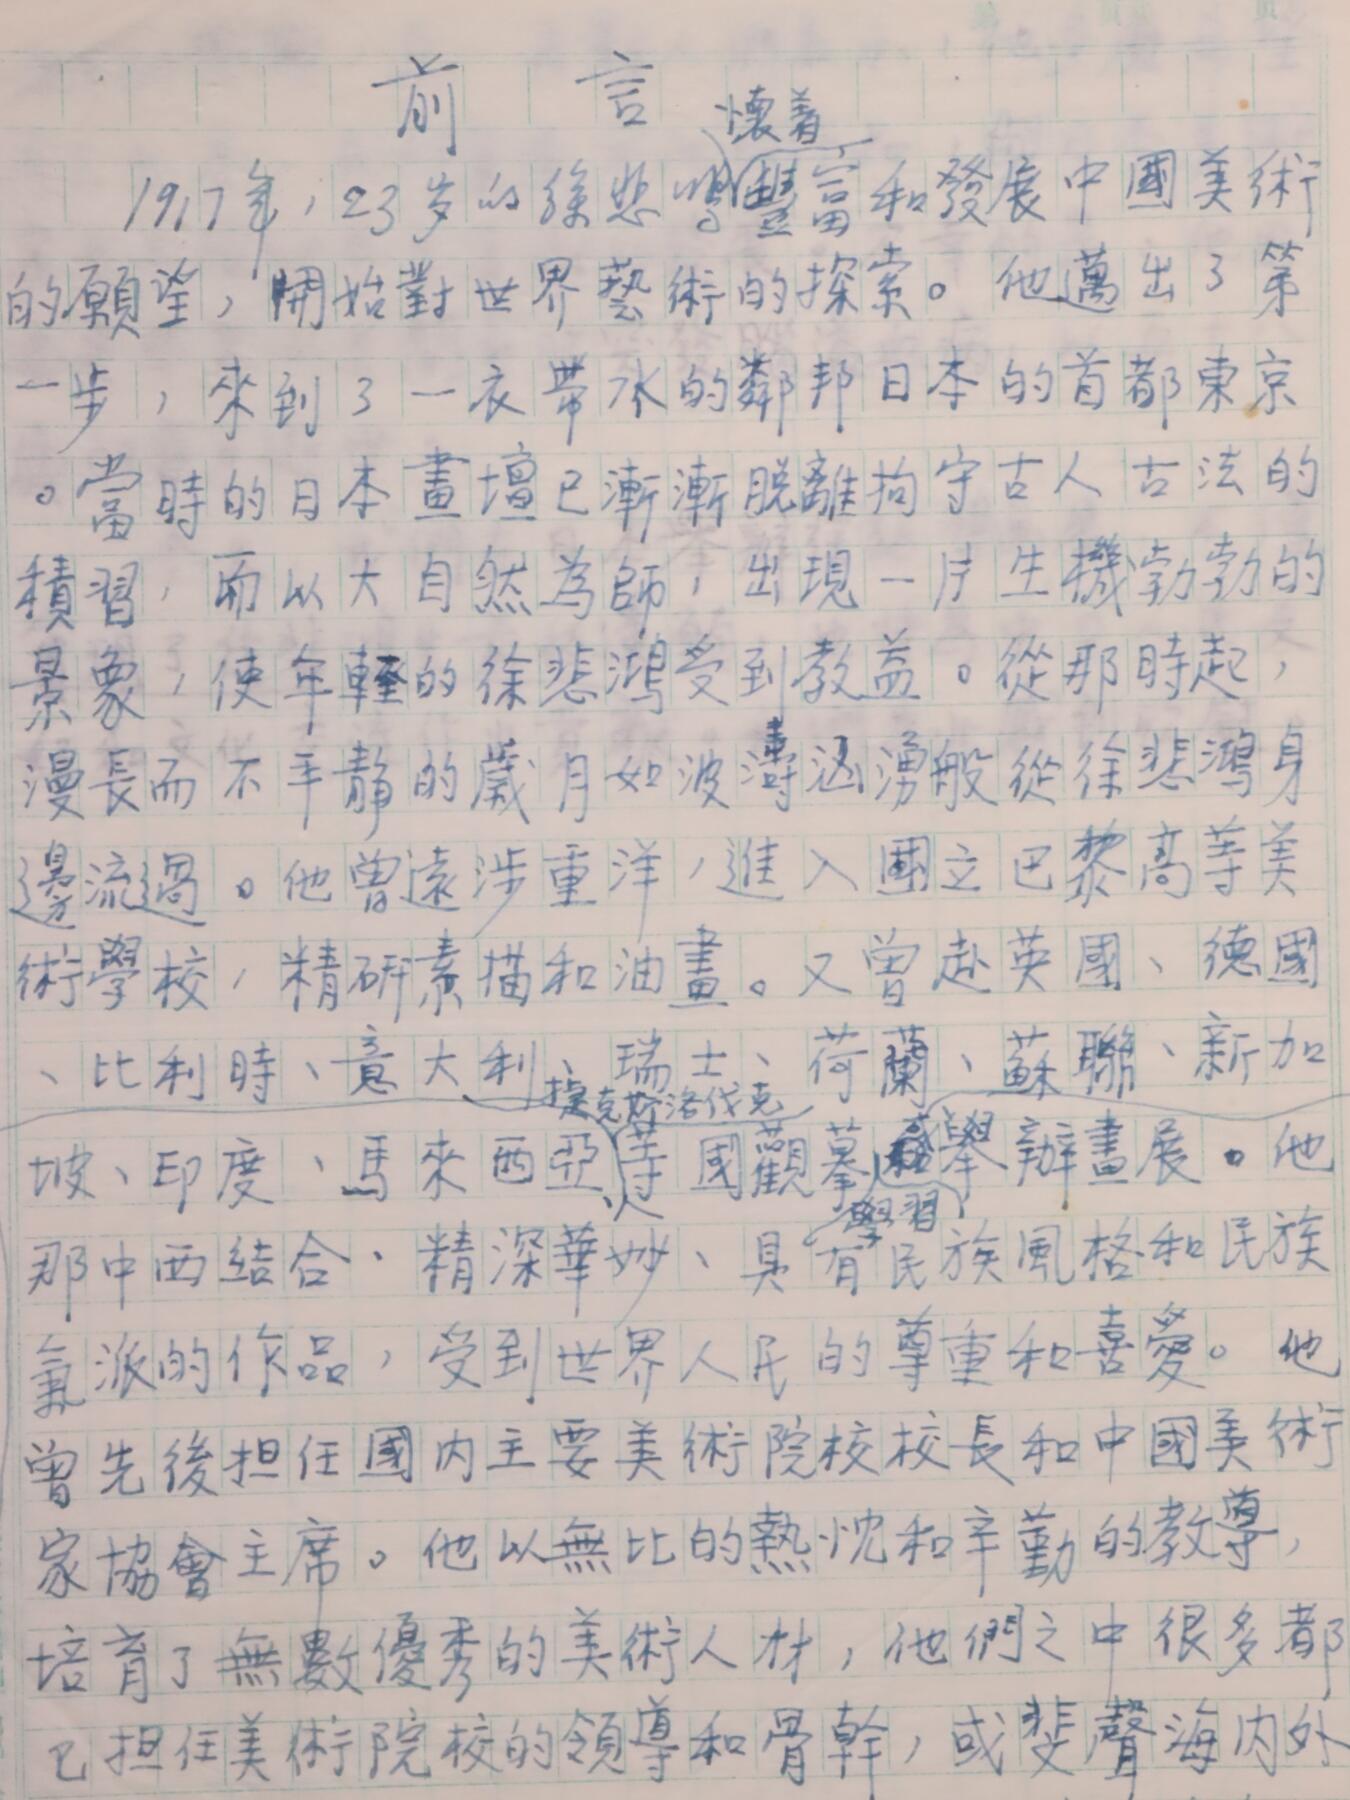 前言
懷着
1917年，23岁的徐悲鴻豐富和發展中國美術
的願望，開始對世界藝術的探索。他邁出了第
一步，來到了一衣帶水的鄰邦日本的首都東京
。當時的日本畫壇已漸漸脱離拘守古人古法的
積習，而以大自然為師，出現一片生機勃勃的
景象，使年輕的徐悲鴻受到教益。從那時起，
漫長而不平静的歲月如波濤洶湧般從徐悲鴻身
邊流過。他曾遠涉重洋，進入國立巴黎高等美
術學校，精研素描和油畫。又曾赴英國、德國
、比利時、意大利、瑞士、荷蘭、蘇聯、新加
捷克斯洛伐克
坡、印度、馬來西亞等國觀摹舉辦畫展。他
學習
那中西結合、精深華妙、具有民族風格和民族
氣派的作品，受到世界人民的尊重和喜愛。他
曾先後担任國内主要美術院校校長和中國美術
家協會主席。他以無比的熱忱和辛勤的教導，
培育了無數優秀的美術人材，他們之中很多都
已担任美術院校的領導和骨幹，或斐聲海内外